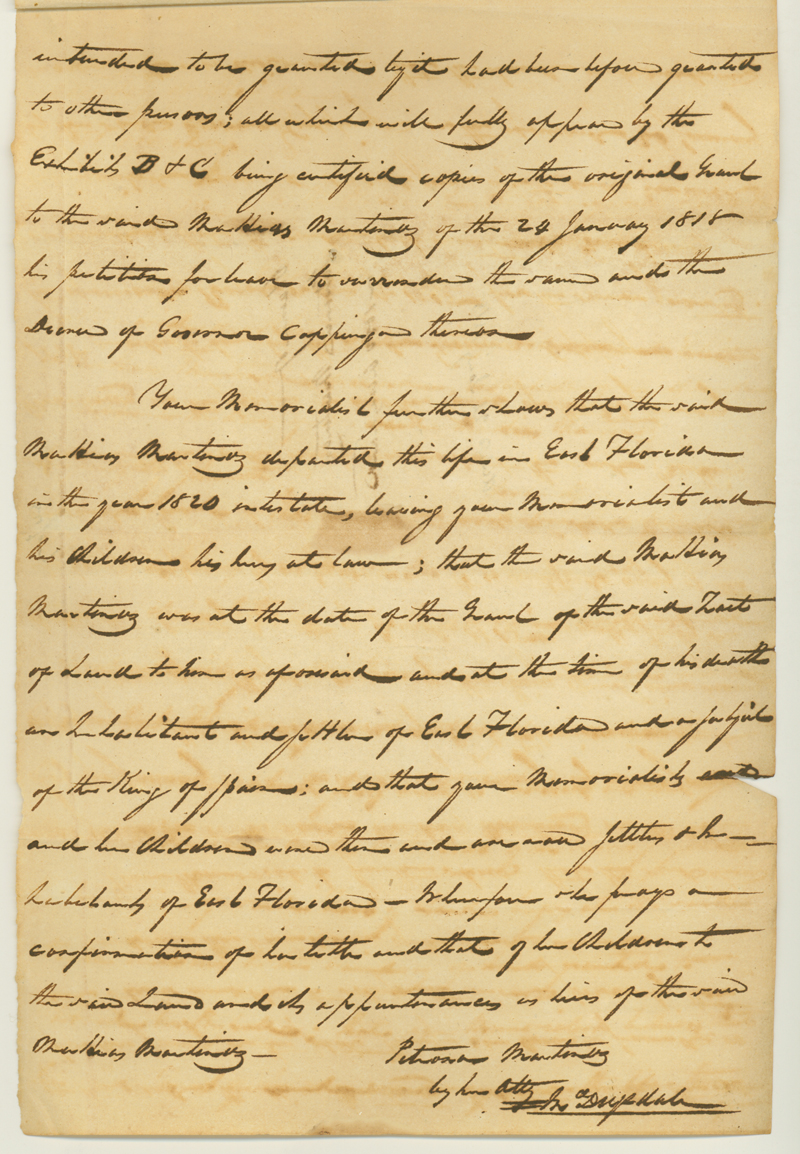 intended to be granted by it had been before granted
to other persons; all which will fully appear by the
Exhibits B & C being certified copies of the original Grant
to the said Mathias Martinez of the 24 January 1818
his petition for leave to surrender the same and the
Decree of Governor Coppinger thereon
Your Memorialist further shews that the said
Mathias Martinez departed this life in East Florida
in the year 1820 intestate, leaving your Memorialist and
his Children his heirs at law; that the said Mathias
Martinez was at the date of the Grant of the said Tract
of Land to him as aforesaid and at the time of his death
an Inhabitant and settler of East Florida and a subject
of the King of Spain; and that your Memorialist
and her Children were then and are now settlers & In-
habitants of East Florida - Wherefore she prays a
confirmation of her title and that of her Children to
the said Land and its appurtenances as heirs of the said
Mathias Martinez -
Petrona Martinez
by her Atty
Dugdale